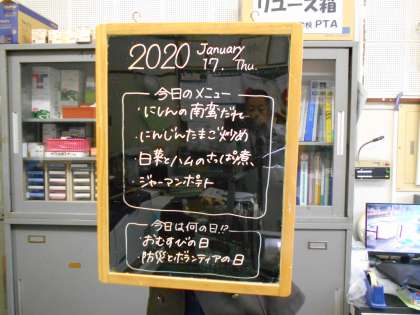 リユース箱
PTA
2020 January
17. Thu.
今日のメニュー
・にしんの南蛮だれ
・にんじんたまご炒め
・白菜とハムのさっぱ煮、
・ジャーマンポテト
今日は何の日!?
・おむすびの日
・防災とボランティアの日